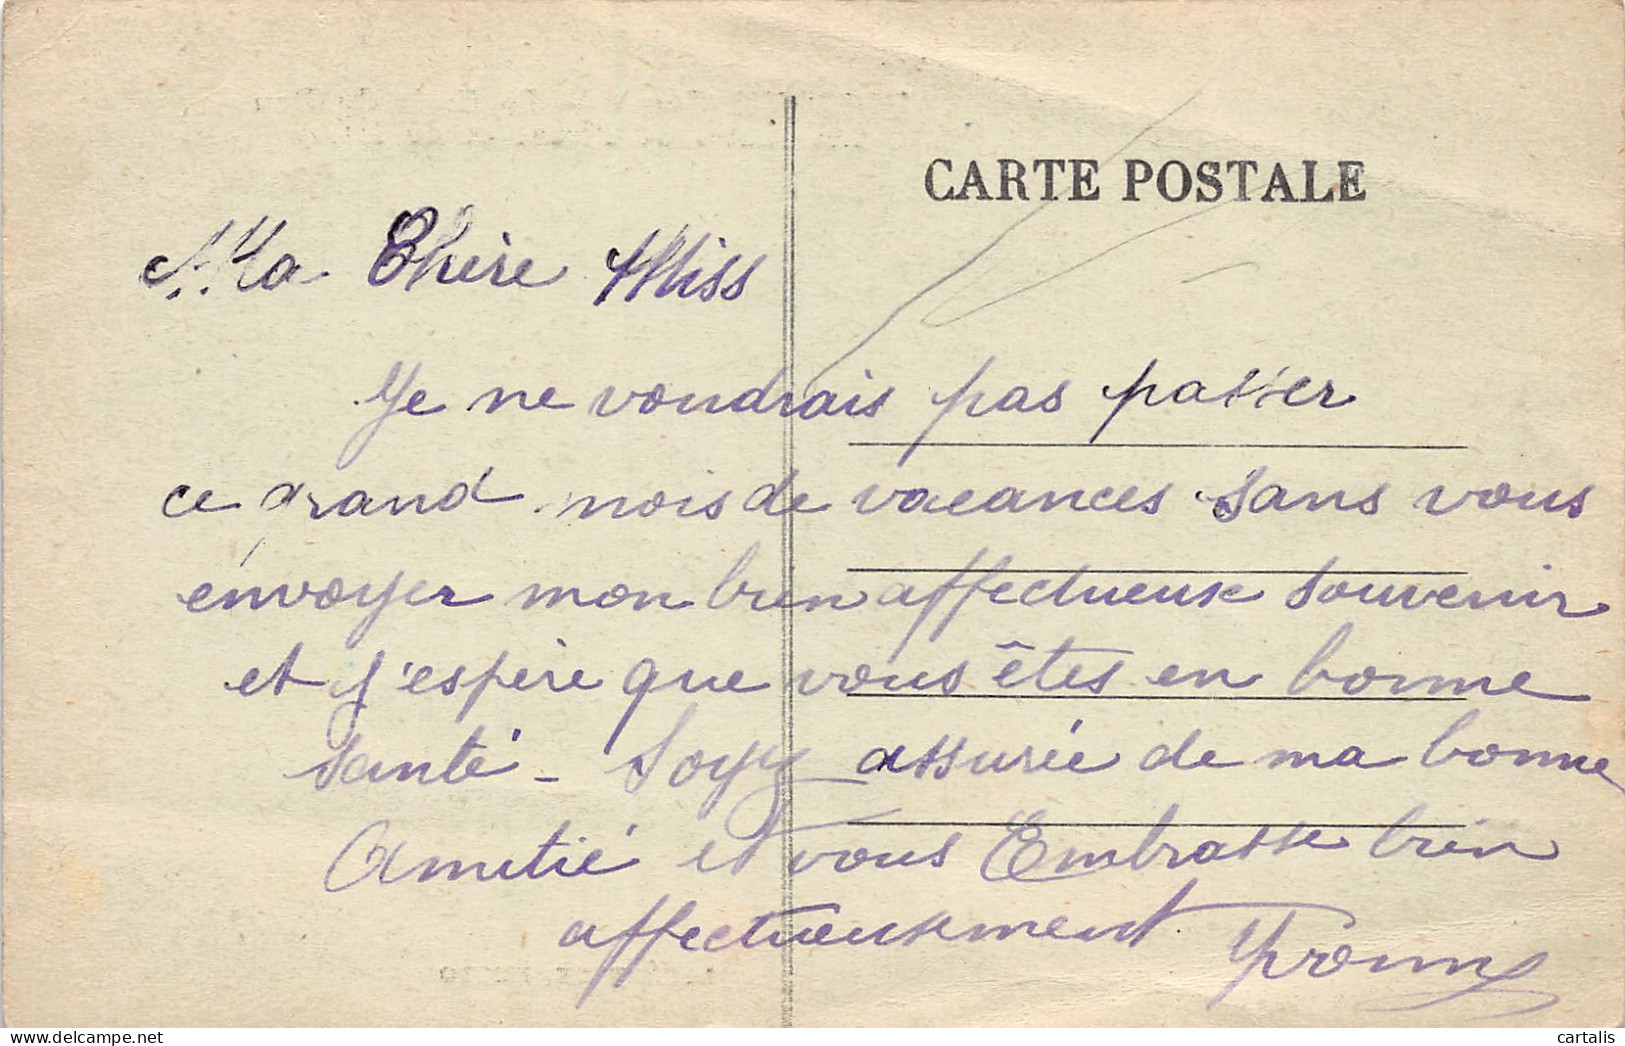 CARTE POSTALE
Ma Chère Miss
Je ne voudrais pas passer
ce grand mois de vacances sans vous
envoyer mon bien affectueuse souvenir
et j'espère que vous êtes en bonne
santé - Soyez assurée de ma bonne
Amitié et vous Embrasse bien
affectueusement Yvonne
cartalis
delcampe.net